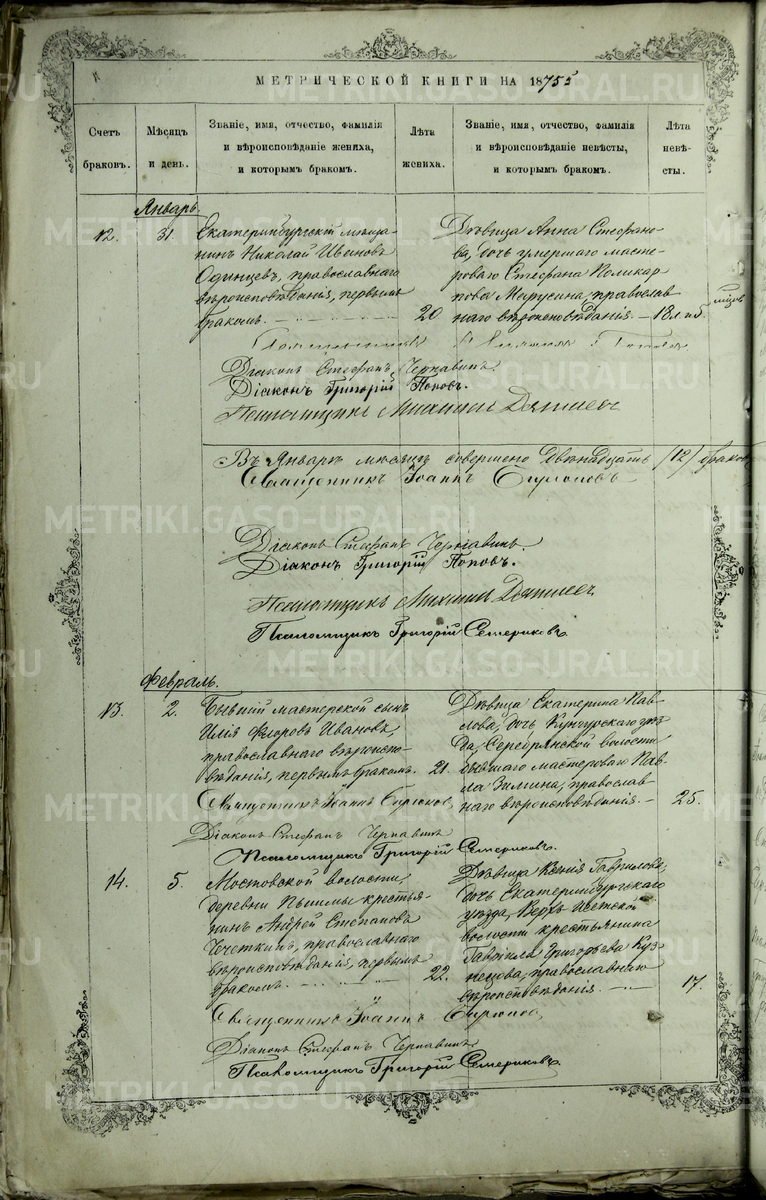 МЕТРИЧЕСКОЙ КНИГИ НА 1875
Счетъ браковъ.
Мѣсяцъ и день.
Званіе, имя, отчество, фамилія
и вѣроисповѣданіе жениха,
и которымъ бракомъ.
Лѣта жениха.
Званіе, имя, отчество, фамилія
и вѣроисповѣданіе невѣсты,
и которымъ бракомъ.
Лѣта невѣ-
сты.
Январь.
12.
31.
Екатеринбургскій мѣща-
нинъ Николай Ивановъ
Одинцевъ, православнаго
вѣроисповѣданія, первымъ
бракомъ.
20
Дѣвица Анна Стефано-
ва, дочь умершаго масте-
роваго Стефана Поликар
пова, православ-
наго вѣроисповѣданія. — 18
Діаконъ Стефанъ Чернавинъ
Діаконъ Григорій Поповъ.
Псаломщикъ Михаилъ
Въ Январѣ мѣсяцѣ совершено двѣнадцать /12/ браковъ
Священникъ Іоаннъ
Діаконъ Стефанъ Чернавинъ.
Діаконъ Григорій Поповъ.
Псаломщикъ Михаилъ
Псаломщикъ Григорій Семериковъ
Февраль.
13.
2.
Бывшій мастерской сынъ
Илія Флоровъ Ивановъ,
православнаго вѣроиспо-
вѣданія, первымъ бракомъ.
21.
Дѣвица Екатерина Пав-
лова, дочь Кунгурскаго уѣз
да, Серебрянской волости
бывшаго мастероваго Пав-
ла Зимина, православ-
наго вѣроисповѣданія. —
25.
Священникъ Іоаннъ
Діаконъ Стефанъ Чернавинъ
Псаломщикъ Григорій Семериковъ.
14.
5.
Мостовской волости,
деревни Пышмы крестья-
нинъ Андрей Степановъ
Чечеткинъ, православнаго
вѣроисповѣданія, первымъ
бракомъ.
22.
Дѣвица Ксенія Гаврилова,
дочь Екатеринбургскаго
уѣзда, Верхъ-Исетской
волости крестьянина
Гавріила Григорьева Куз-
нецова, православнаго
вѣроисповѣданія. —
17.
Священникъ Іоаннъ
Діаконъ Стефанъ Чернавинъ
Псаломщикъ Григорій Семериковъ
METRIKI.GASO-URAL.RU